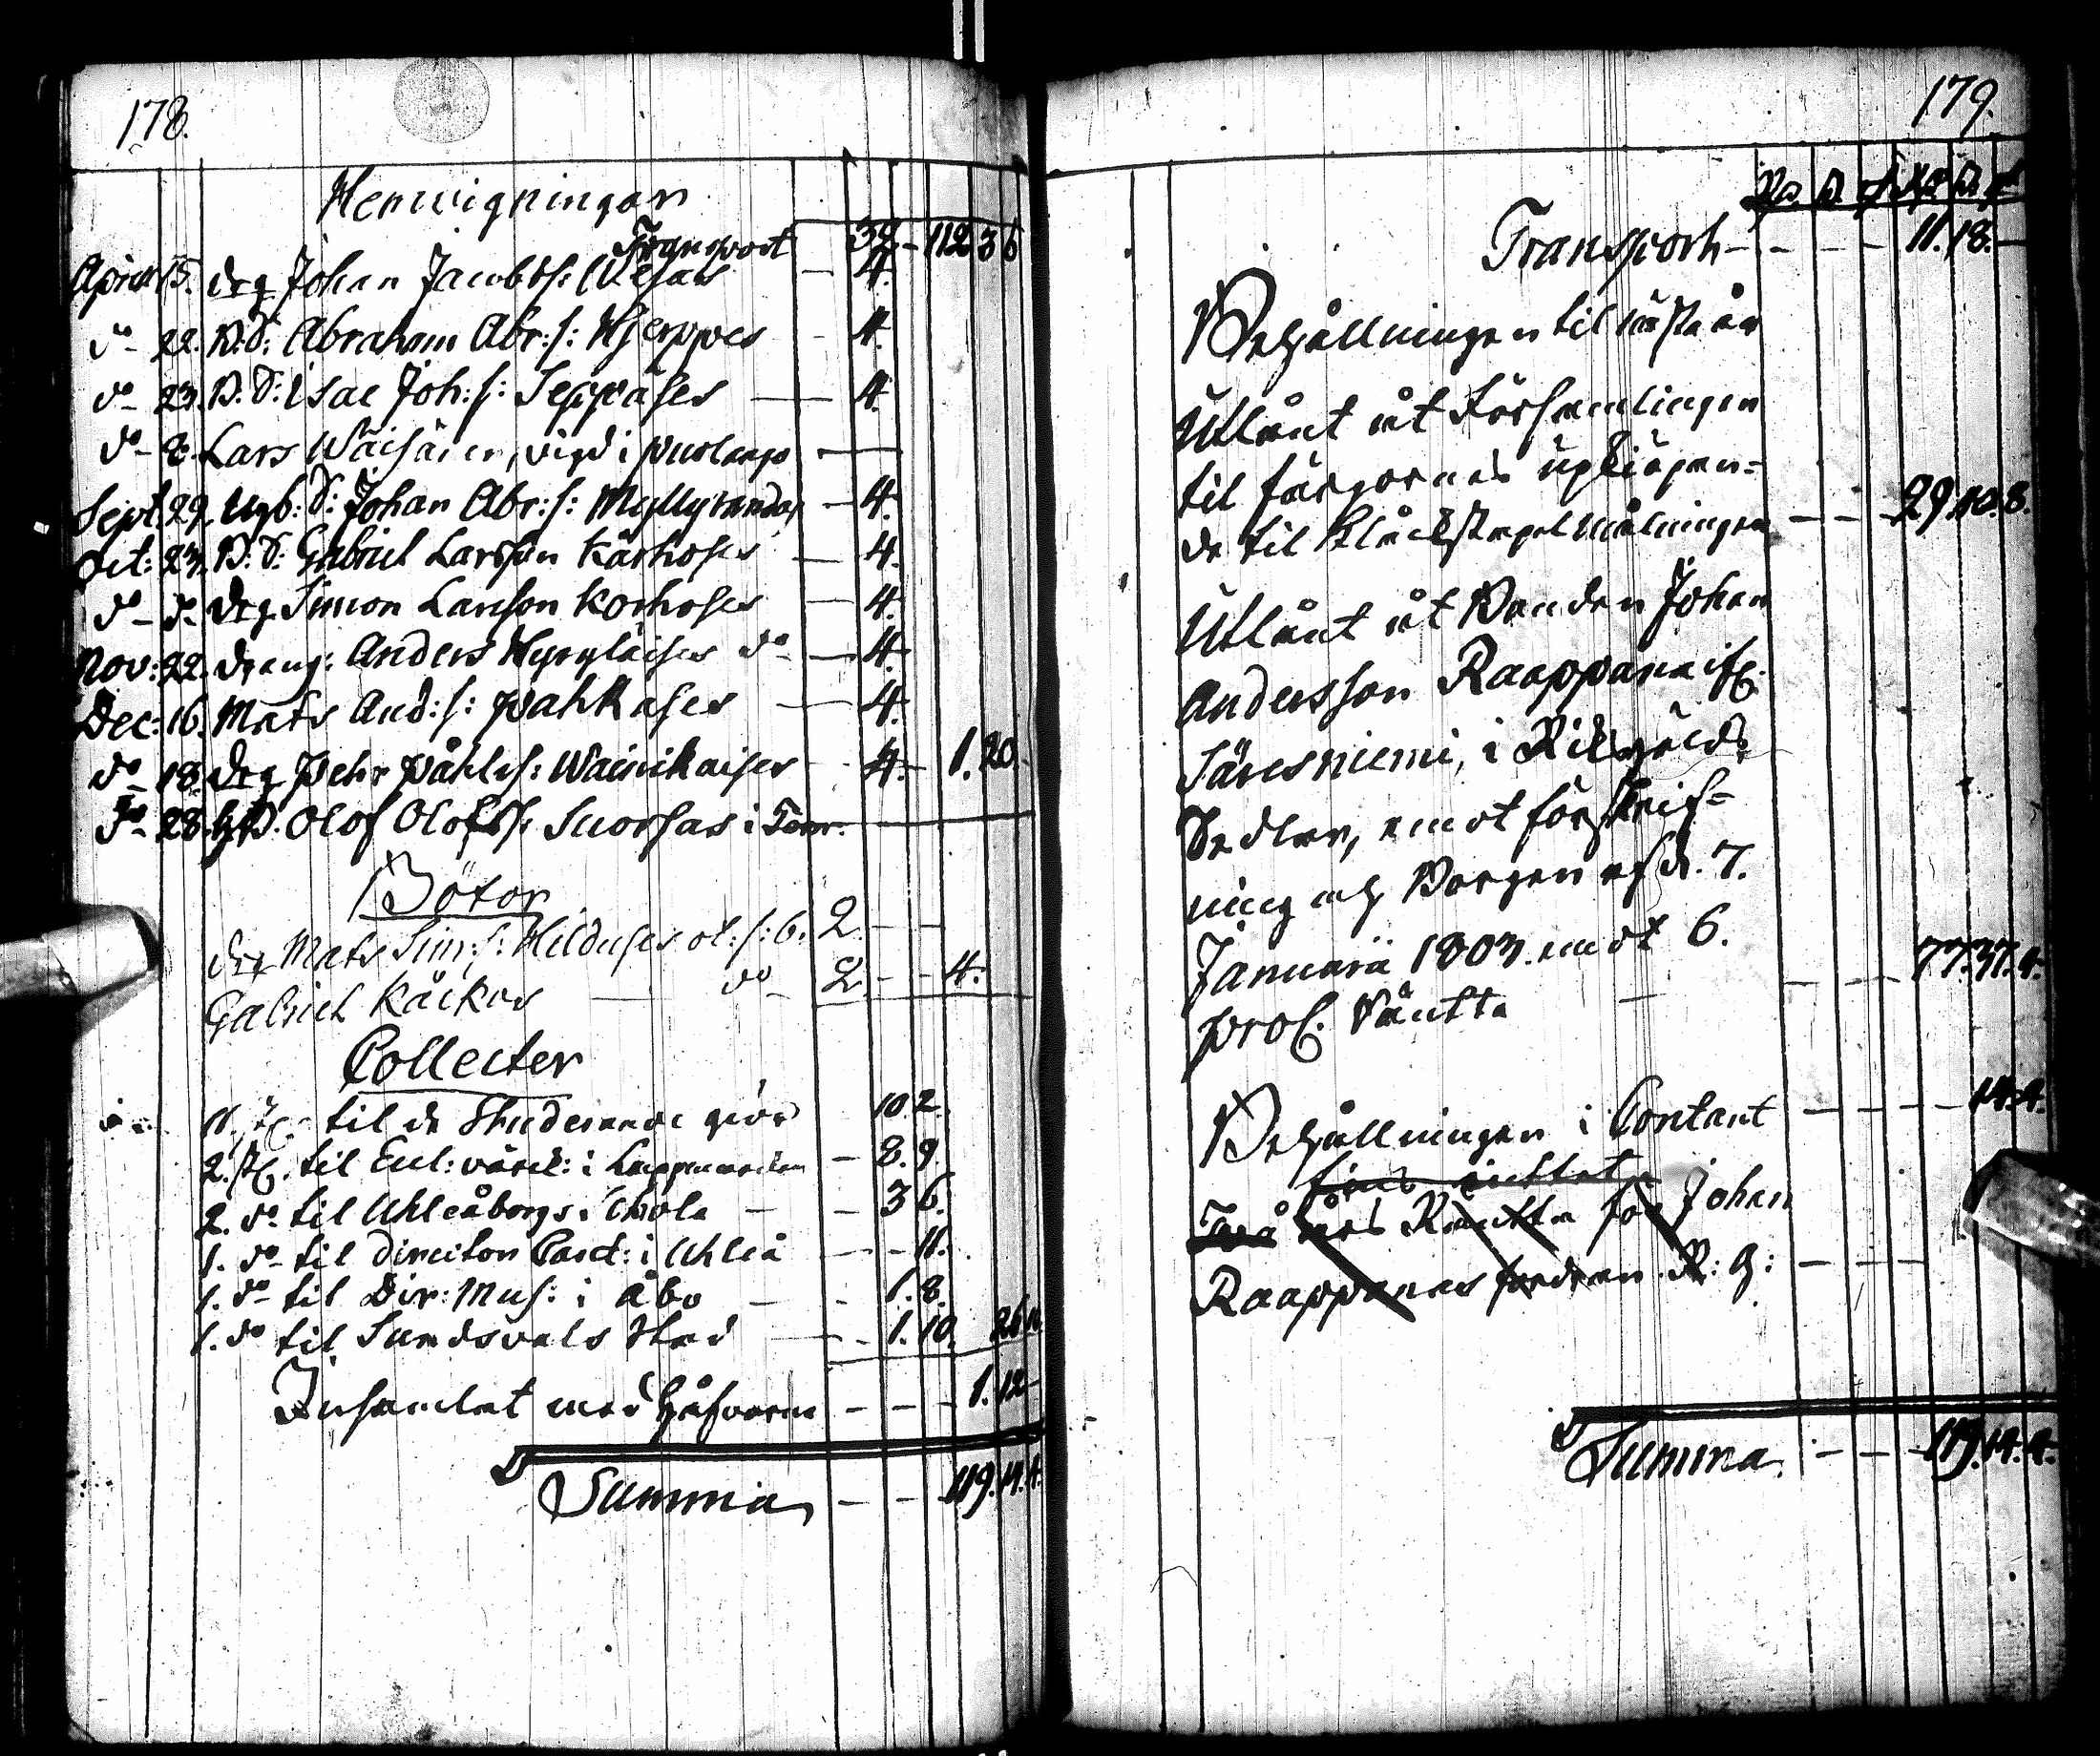 178.
Hemvigningar
Transport 32 - 112 36
April 15. drg Johan Jacobss: Wesas — 4.
do - 22. B. S: Abraham Abr: s: Hjerppes - 4.
do - 23. B. S: Isac Joh: s: Seppäses — 4.
do - Lars Wäisäinen, vigd i puolango —
Sept 29. Ugb: S: Johan Abr: s: Myllyrandas — 4.
Oct: 23. B. S: Gabriel Larsson Kårhoses — 4.
do - do drg Simon Larsson Korhoses — 4.
Nov: 22. dreng: Anders Hyryläises do — 4.
Dec: 16. Mats And: s: pahkases — 4.
do - 18. drg Pehr påhls: Wäinikaises - 4. - 1. 20.
do - 28. Olof Olofss: Suorsas i
Böter
drg Mats Sim: s: Hilduses 2. — —
Gabriel Kåckos — do - 2 - - 4.
Collecter
11. st. til de Studerande giör 10. 2.
2. st. til Eul: värck: i Lappmarken — 8. 9.
2. do til Uhleåborgs Schola — — 3 6.
1. do til direction i Uhleå - - - 11.
1. do til Dir: Mus: i Åbo — - 1. 8.
1. do til Sundsvals Stad — - 1. 10. 26
Insamlat med håfvarne - - - 1. 12 -
Summa — — 119. 14. 4.
179.
Transport - - - - 11. 18. —
Behållningen til nästa år
Utlånt åt Församlingen
til färgornes upkiöpan=
de til Klåckstapel målningen — — 29. 10. 8.
Utlånt åt Bonden Johan
Andersson Raappana
Säresniemi, i Riksgälds
Sedlar, emot förskrif=
ning och Borgen af d. 7.
Januarii 1803. emot 6.
proC. Räntta — — 77. 37. 4.
Behållningen i Contant — — — 14. 4.
Två års Räntta för Johan
Raappanas R: G: — — —
Summa. - - - 119. 14. 4.